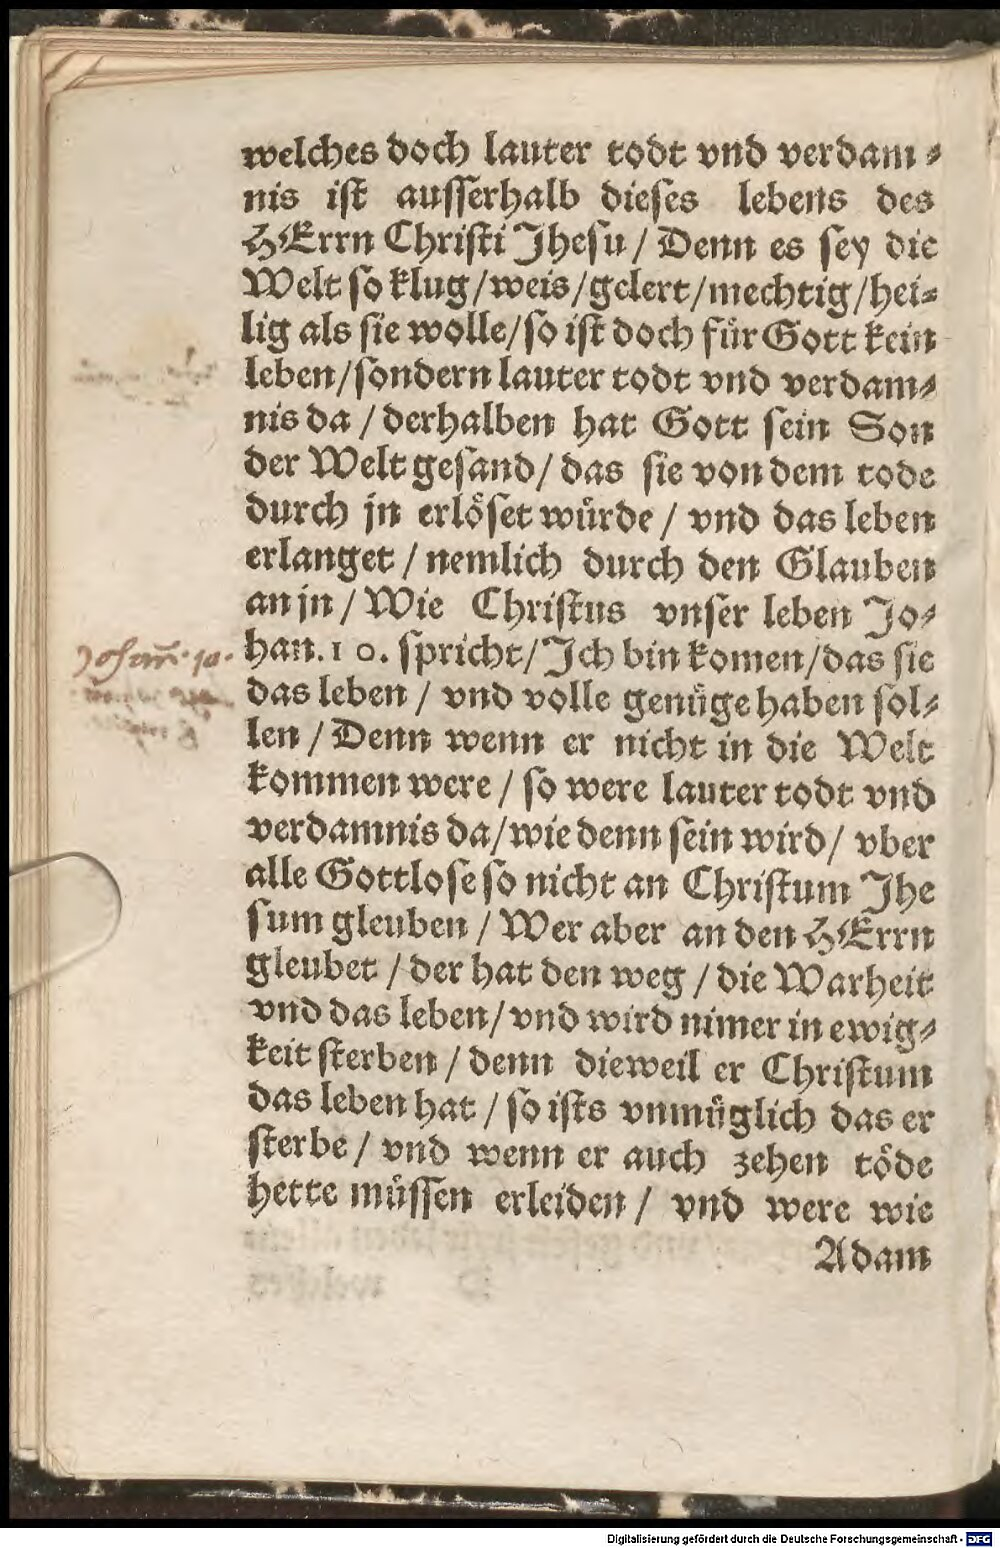 welches doch lauter todt vnd verdam⸗
nis ist ausserhalb dieses lebens des
HErrn Christi Jhesu / Denn es sey die
Welt so klug / weis / gelert / mechtig / hei⸗
lig als sie wolle / so ist doch für Gott kein
leben / sondern lauter todt vnd verdam⸗
nis da / derhalben hat Gott sein Son
der Welt gesand / das sie von dem tode
durch jn erlöset würde / vnd das leben
erlanget / nemlich durch den Glauben
an jn / Wie Christus vnser leben Jo⸗
Johan̄. 10.
han. 10. spricht / Jch bin komen / das sie
das leben / vnd volle genüge haben sol⸗
len / Denn wenn er nicht in die Welt
kommen were / so were lauter todt vnd
verdamnis da / wie denn sein wird / vber
alle Gottlose so nicht an Christum Jhe
sum gleuben / Wer aber an den HErrn
gleubet / der hat den weg / die Warheit
vnd das leben / vnd wird nimer in ewig⸗
keit sterben / denn dieweil er Christum
das leben hat / so ists vnmüglich das er
sterbe / vnd wenn er auch zehen töde
hette müssen erleiden / vnd were wie
Adam
Digitalisierung gefördert durch die Deutsche Forschungsgemeinschaft - DFG